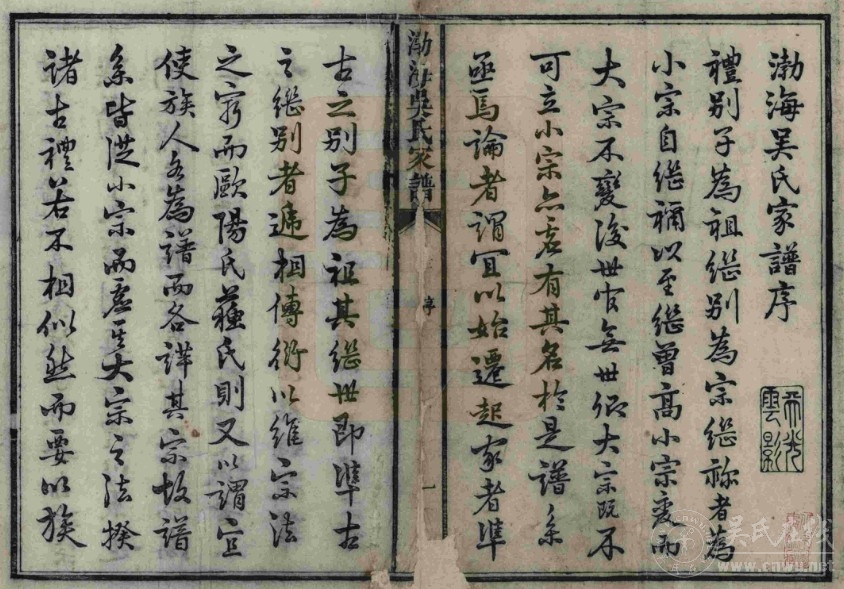 渤海吴氏家譜序
禮別子為祖繼別為宗繼祢者為
小宗自繼禰以至繼曾高小宗變而
大宗不變後世官無世卿大宗既不
可立小宗亦虛有其名於是譜系
亟焉論者謂宜以始遷起家者準
渤海吳氏家譜
序
一
古之別子為祖其繼世即準古
之繼別者遞相傳衍以維宗法
之窮而歐陽氏蘇氏則又以謂宜
使族人各為譜而各詳其宗故譜
系皆從小宗而虛其大宗之法揆
諸古禮若不相似然而要以族
雲影
吴氏在线
www.cnwu.net